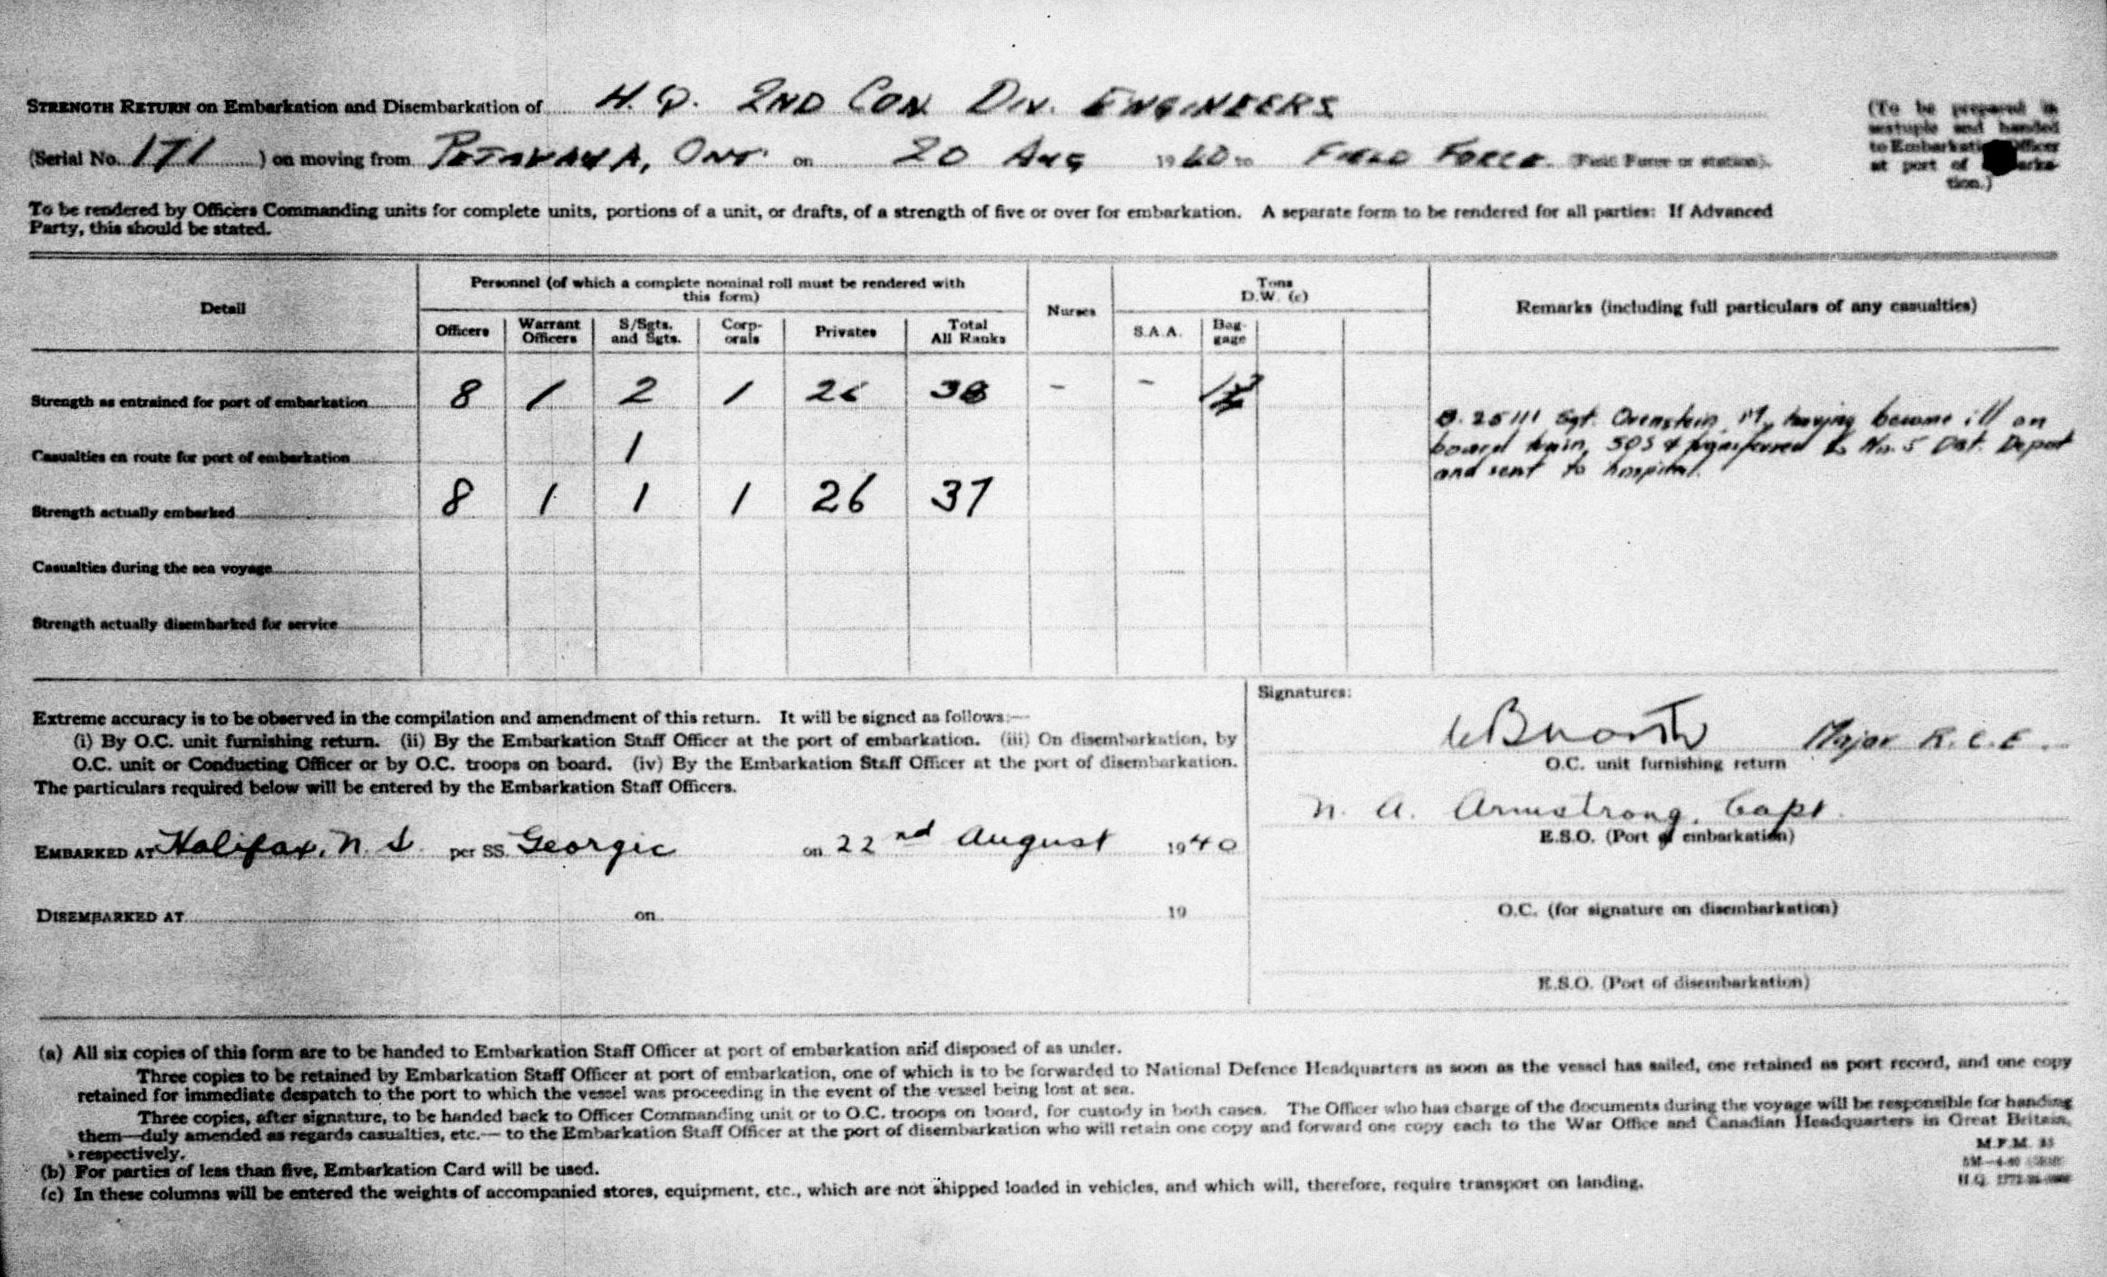 STRENGTH RETURN on Embarkation and Disembarkation of H. Q. 2ND CAN DIV. ENGINEERS
(To be prepared in
sextuple and handed
to Embarkation Officer
at port of Embarka-
tion.)
(Serial No. 171 ) on moving from PETAWAWA, ONT. on 20 AUG 1940 to FIELD FORCE (Field Force or station).
To be rendered by Officers Commanding units for complete units, portions of a unit, or drafts, of a strength of five or over for embarkation. A separate form to be rendered for all parties: If Advanced
Party, this should be stated.
Detail
Personnel (of which a complete nominal roll must be rendered with
this form)
Nurses
Tons
D.W. (c)
Remarks (including full particulars of any casualties)
Officers
Warrant
Officers
S/Sgts.
and Sgts.
Corp-
orals
Privates
Total
All Ranks
S.A.A.
Bag-
gage
Strength as entrained for port of embarkation 8 1 2 1 26 38 - -
Casualties en route for port of embarkation 1
Strength actually embarked 8 1 1 1 26 37
Casualties during the sea voyage
Strength actually disembarked for service
B. 25111 Sgt. Orenstein, M, having become ill on
board train, SOS & transferred to No. 5 Dist. Depot
and sent to hospital.
Extreme accuracy is to be observed in the compilation and amendment of this return. It will be signed as follows:—
(i) By O.C. unit furnishing return. (ii) By the Embarkation Staff Officer at the port of embarkation. (iii) On disembarkation, by
O.C. unit or Conducting Officer or by O.C. troops on board. (iv) By the Embarkation Staff Officer at the port of disembarkation.
The particulars required below will be entered by the Embarkation Staff Officers.
EMBARKED AT Halifax, N. S. per SS. Georgic on 22nd August 1940
DISEMBARKED AT on 19
Signatures:
Major R.C.E.
O.C. unit furnishing return
N. A. Armstrong, Capt.
E.S.O. (Port of embarkation)
O.C. (for signature on disembarkation)
E.S.O. (Port of disembarkation)
(a) All six copies of this form are to be handed to Embarkation Staff Officer at port of embarkation and disposed of as under.
Three copies to be retained by Embarkation Staff Officer at port of embarkation, one of which is to be forwarded to National Defence Headquarters as soon as the vessel has sailed, one retained as port record, and one copy
retained for immediate despatch to the port to which the vessel was proceeding in the event of the vessel being lost at sea.
Three copies, after signature, to be handed back to Officer Commanding unit or to O.C. troops on board, for custody in both cases. The Officer who has charge of the documents during the voyage will be responsible for handing
them—duly amended as regards casualties, etc.— to the Embarkation Staff Officer at the port of disembarkation who will retain one copy and forward one copy each to the War Office and Canadian Headquarters in Great Britain,
respectively.
(b) For parties of less than five, Embarkation Card will be used.
(c) In these columns will be entered the weights of accompanied stores, equipment, etc., which are not shipped loaded in vehicles, and which will, therefore, require transport on landing.
M.F.M.
H.Q.